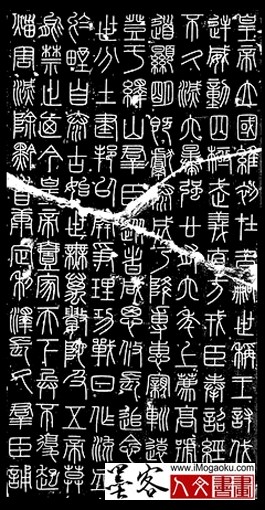 皇帝立國維初在昔嗣世稱王討伐
逆威動四極武義直方戎臣奉詔經
不久滅六暴強廿有六年上薦高號
道顯明既獻泰成乃降專惠寴巡遠
登于繹山群臣從者咸思攸長追念
世分土建邦以開爭理功戰日作流
於野自泰古始世無萬數陀及五帝莫
能禁止廼今皇帝壹家天下兵不復起
災害滅除黔首康定利澤長久群臣誦
www.iMogaoku.com
墨客
人文書畫